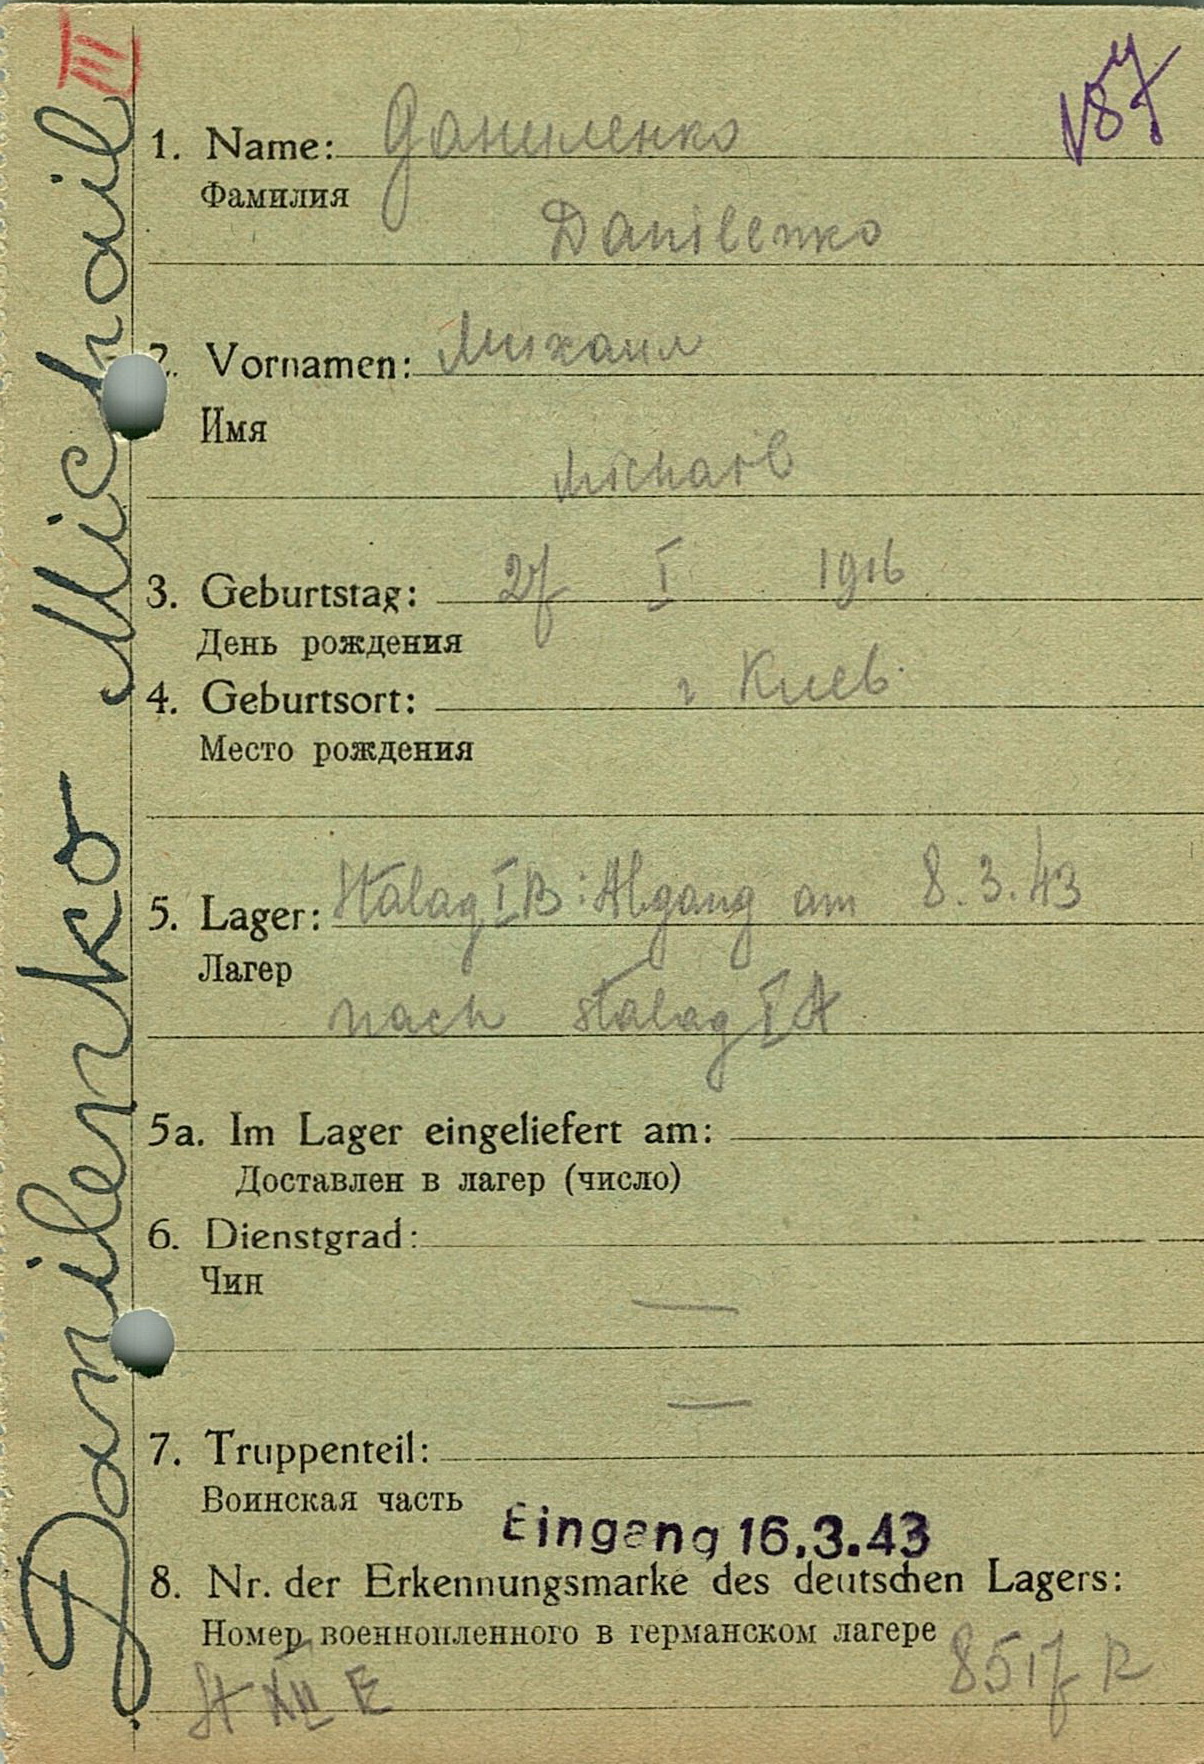 III
1. Name: Даниленко
Фамилия
Danilenko
2. Vornamen: Михаил
Имя
Michail
3. Geburtstag: 27 I 1916
День рождения
4. Geburtsort: г Киев.
Место рождения
5. Lager: Stalag IB: Abgang am 8.3.43
Лагер
nach Stalag IA
5a. Im Lager eingeliefert am:
Доставлен в лагер (число)
6. Dienstgrad: —
Чин
—
7. Truppenteil:
Воинская часть
Eingang 16.3.43
8. Nr. der Erkennungsmarke des deutschen Lagers:
Номер военнопленного в германском лагере
8517 R
Danilenko Michail